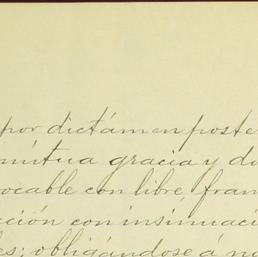 por dictámen poste
mútua gracia y do
ocable con libre fran
ción con insinuaci
es; obligándose á no